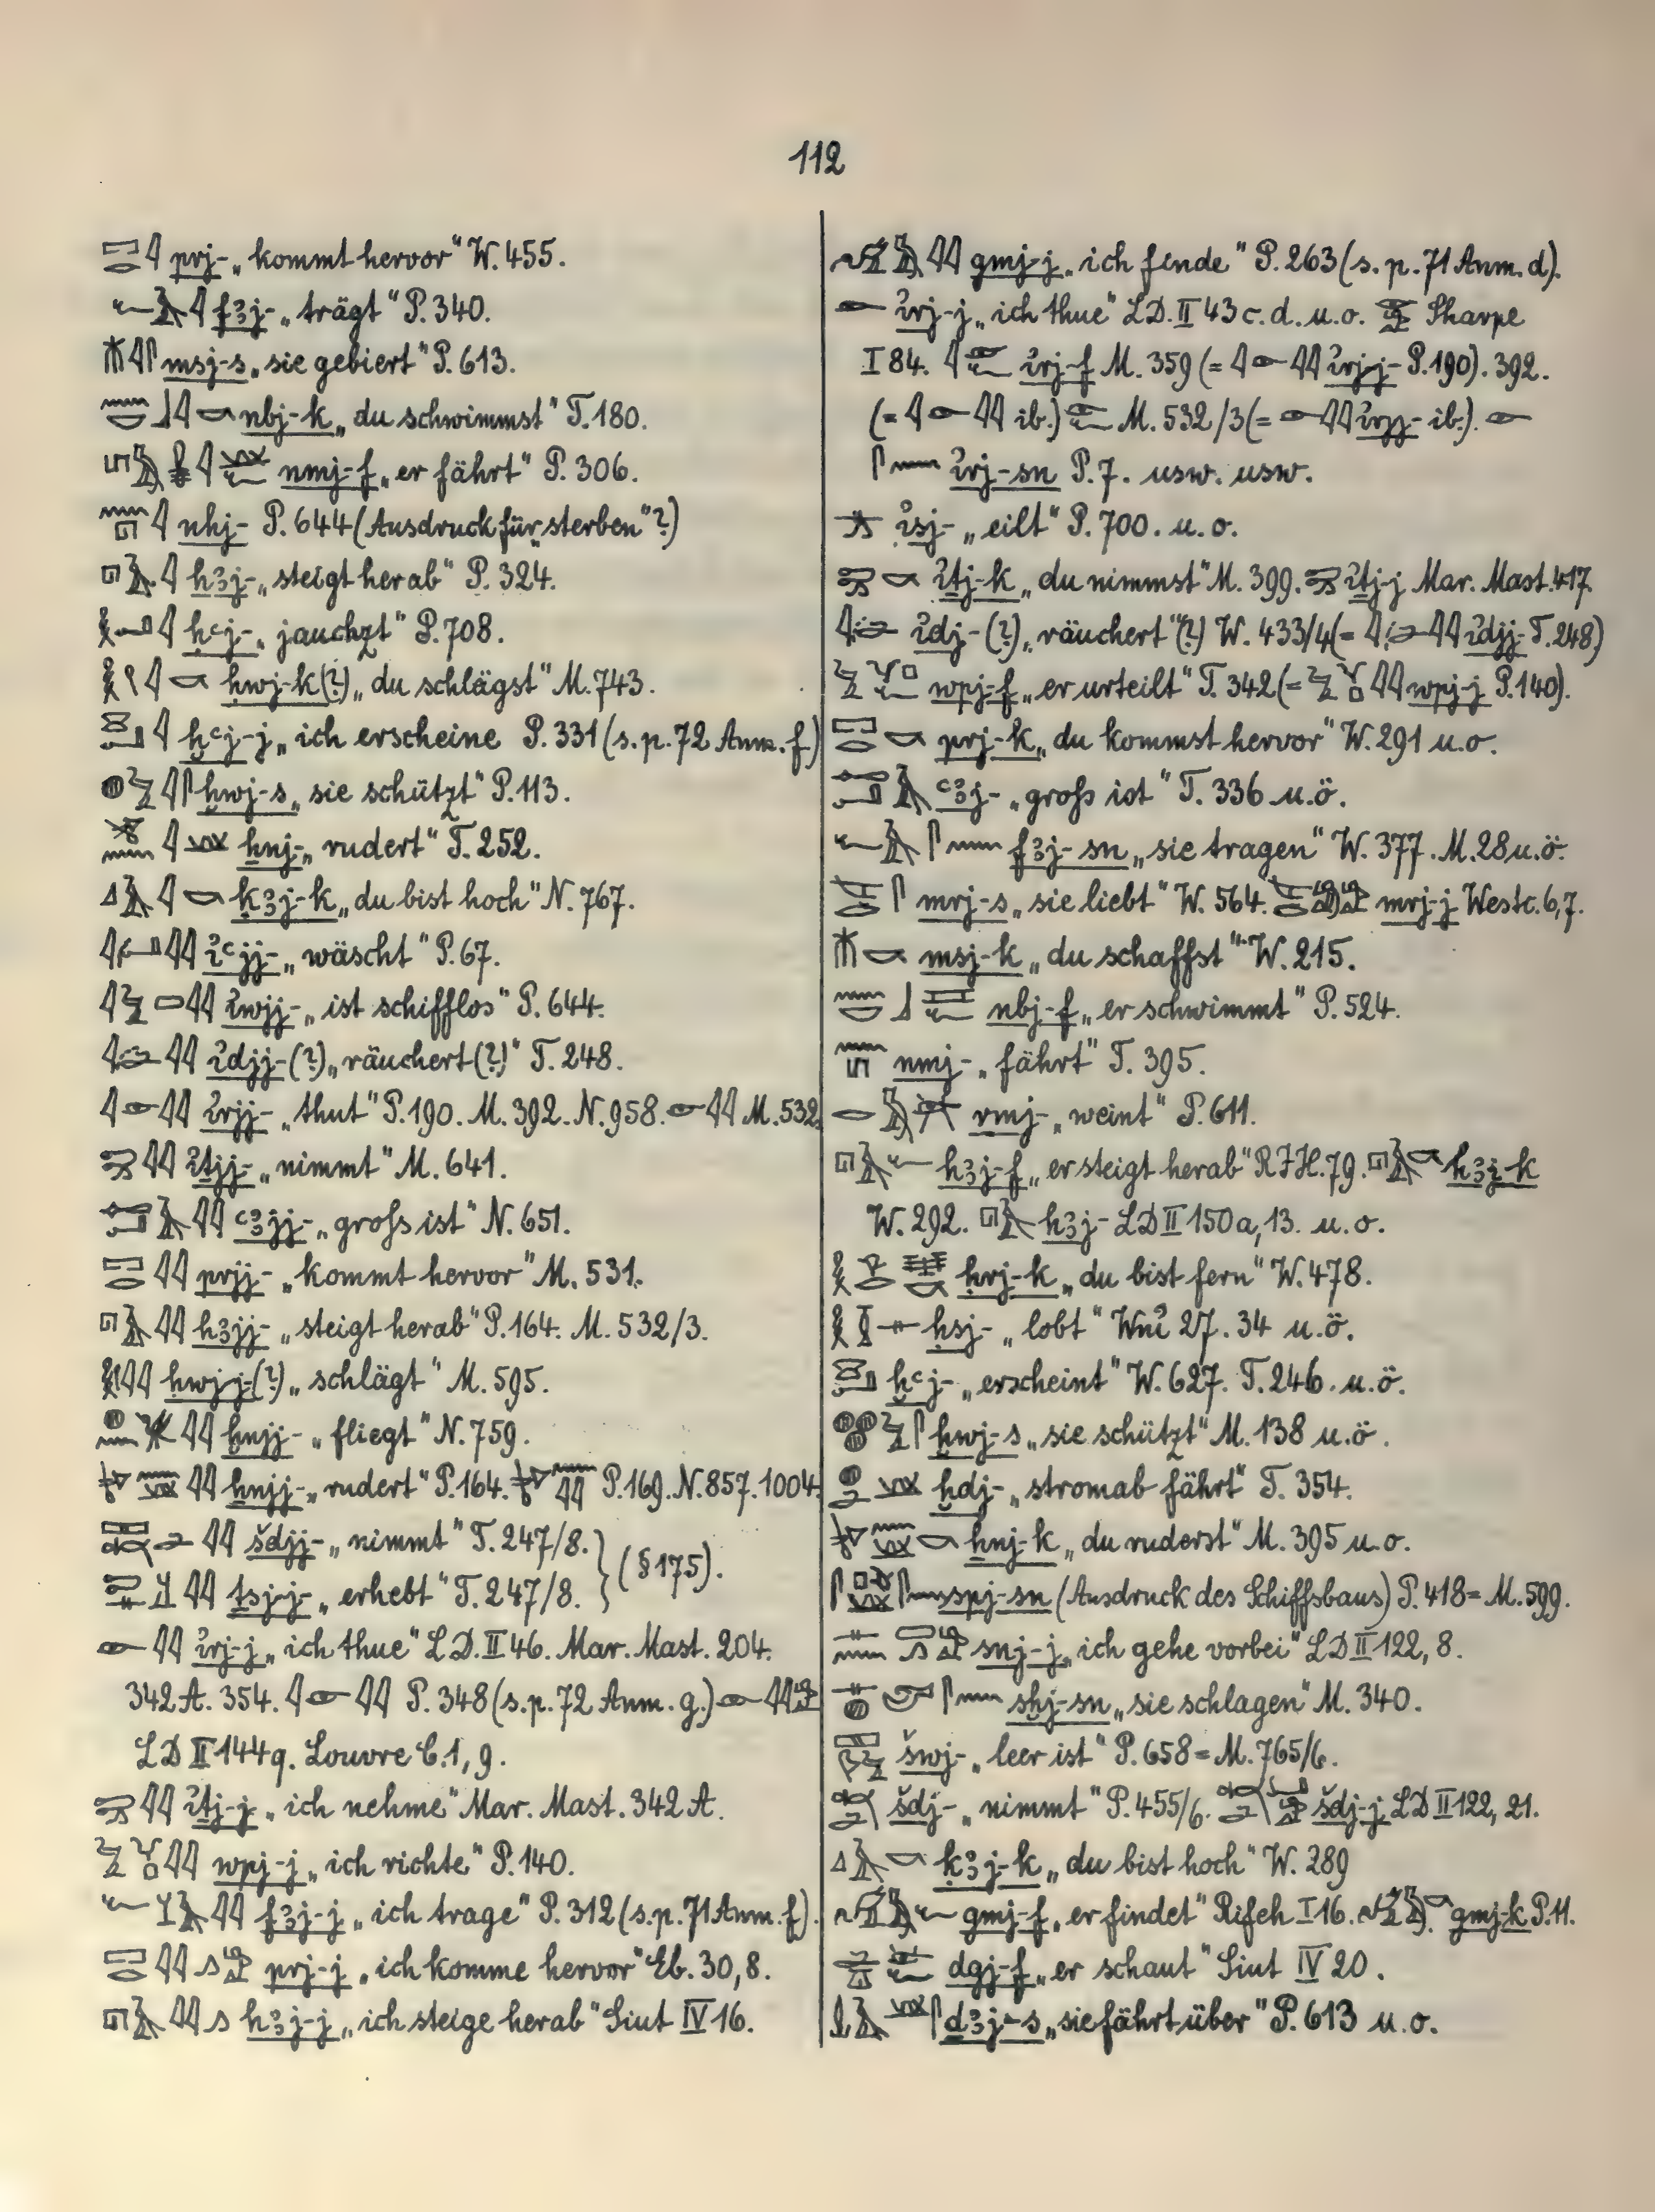 112
prj- „kommt hervor“ W. 455.
fꜣj- „trägt“ P. 340.
msj-s „sie gebiert“ P. 613.
nbj-k „du schwimmst“ T. 180.
nmj-f „er fährt“ P. 306.
nhj- P. 644 (Ausdruck für „sterben“?)
hꜣj- „steigt herab“ P. 324.
ḥꜥj- „jauchzt“ P. 708.
ḥwj-k (?) „du schlägst“ M. 743.
ḫꜥj-j „ich erscheine P. 331 (s. p. 72 Anm. f)
ḫwj-s „sie schützt“ P. 113.
ẖnj- „rudert“ T. 252.
ḳꜣj-k „du bist hoch“ N. 767.
iꜥjj- „wäscht“ P. 67.
iwjj- „ist schifflos“ P. 644.
idjj- (?) „räuchert (?)“ T. 248.
irjj- „thut“ P. 190. M. 392. N. 958. M. 532.
iṯjj- „nimmt“ M. 641.
ꜥꜣjj- „groſs ist“ N. 651.
prjj- „kommt hervor“ M. 531.
hꜣjj- „steigt herab“ P. 164. M. 532/3.
ḥwjj- (?) „schlägt“ M. 595.
ḫnjj- „fliegt“ N. 759.
ẖnjj- „rudert“ P. 164. P. 169. N. 857. 1004.
šdjj- „nimmt“ T. 247/8.
ṯsj-j- „erhebt“ T. 247/8. } (§ 175).
irj-j „ich thue“ L.D. II 46. Mar. Mast. 204.
342 A. 354. P. 348 (s. p. 72 Anm. g.)
LD II 144q. Louvre C. 1, 9.
iṯj-j „ich nehme“ Mar. Mast. 342 A.
wpj-j „ich richte“ P. 140.
fꜣj-j „ich trage“ P. 312 (s. p. 71 Anm. f).
prj-j „ich komme hervor“ Eb. 30, 8.
hꜣj-j „ich steige herab“ Siut IV 16.
gmj-j „ich finde“ P. 263 (s. p. 71 Anm. d).
irj-j „ich thue“ LD. II 43 c. d. u. o. Sharpe
I 84. irj-f M. 359 (= irjj- P. 190). 392.
(= ib.) M. 532/3 (= irjj- ib.).
irj-sn P. 7. usw. usw.
isj- „eilt“ P. 700. u. o.
iṯj-k „du nimmst“ M. 399. iṯj-j Mar. Mast. 417.
idj- (?) „räuchert“ (?) W. 433/4 (= idjj- T. 248)
wpj-f „er urteilt“ T. 342 (= wpj-j P. 140).
prj-k „du kommst hervor“ W. 291 u. o.
ꜥꜣj- „groſs ist“ T. 336 u. ö.
fꜣj-sn „sie tragen“ W. 377. M. 28 u. ö.
mrj-s „sie liebt“ W. 564. mrj-j Westc. 6, 7.
msj-k „du schaffst“ W. 215.
nbj-f „er schwimmt“ P. 524.
nmj- „fährt“ T. 395.
rmj- „weint“ P. 611.
hꜣj-f „er steigt herab“ RIH. 79. hꜣj-k
W. 292. hꜣj- LD II 150a, 13. u. o.
ḥrj-k „du bist fern“ W. 478.
ḥsj- „lobt“ Wnỉ 27. 34 u. ö.
ḫꜥj- „erscheint“ W. 627. T. 246. u. ö.
ḫwj-s „sie schützt“ M. 138 u. ö.
ḫdj- „stromab fährt“ T. 354.
ẖnj-k „du ruderst“ M. 395 u. o.
spj-sn (Ausdruck des Schiffsbaus) P. 418 = M. 599.
snj-j „ich gehe vorbei“ LD II 122, 8.
sḫj-sn „sie schlagen“ M. 340.
šwj- „leer ist“ P. 658 = M. 765/6.
šdj- „nimmt“ P. 455/6. šdj-j LD II 122, 21.
ḳꜣj-k „du bist hoch“ W. 289
gmj-f „er findet“ Rifeh I 16. gmj-k P. 11.
dgj-f „er schaut“ Siut IV 20.
ḏꜣj-s „sie fährt über“ P. 613 u. o.